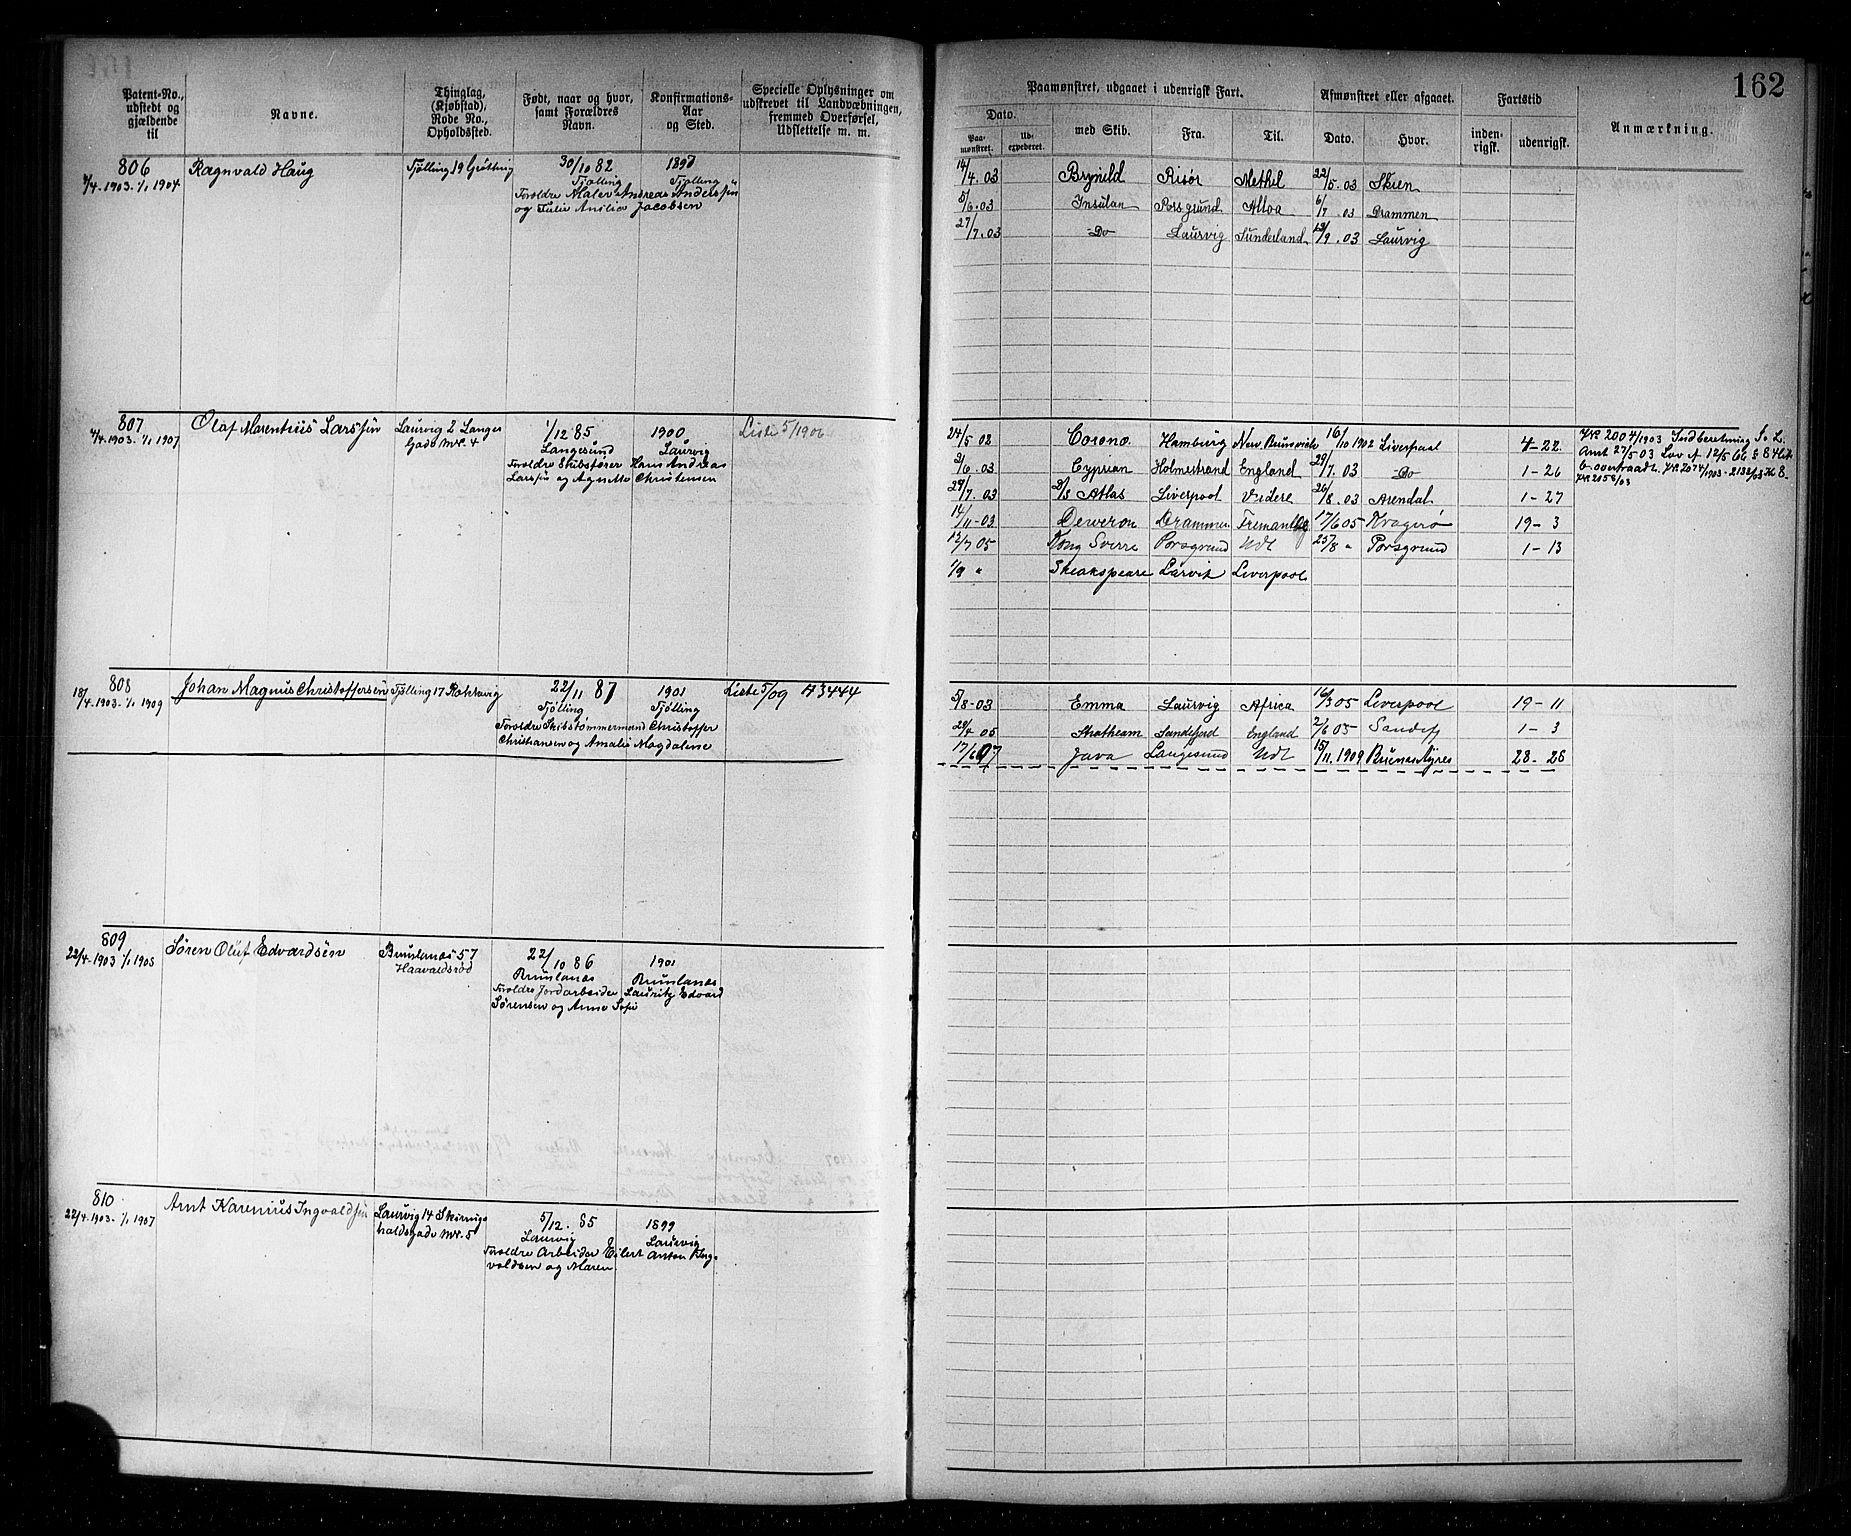 162
Patent-No., udstedt og gjældende til
Navne.
Thinglag, (Kjøbstad), Rode No., Opholdssted.
Født, naar og hvor, samt Forældres Navn.
Konfirmations-Aar og Sted.
Specielle Oplysninger om udskrevet til Landvæbningen, fremmed Overførsel, Udslettelse m. m.
Paamønstret, udgaaet i udenrigsk Fart.
Dato.
Paa-mønstret.
Ud-expederet.
med Skib.
Fra.
Til.
Afmønstret eller afgaaet.
Dato.
Hvor.
Fartstid
inden-rigsk.
udenrigsk.
Anmærkning.
806
4/4.1903. 1/1 1904
Ragnvald Haug
Tjølling 19 Grøtting
30/10 82
Tjølling
1897
Tjølling
Forældre Maler Andreas Anderssen
og Julie Amilie Jacobsen
14/4.03 Brynild Risör Methil 22/5.03 Skien
5/6.03 Insulan Porsgrund Alloa 6/7.03 Drammen
27/7.03 Do Laurvig Sunderland /9.03 Laurvig
807
4/4.1903. 1/1 1907
Olaf Marentius Larssen
Laurvig 2 Lange
Gade Nr. 4
1/12 85
Langesund
1900
Laurvig
Forældre Skibsfører Hans Andreas
Larssen og Agnethe Christensen
Liste 5/1906
24/5 02 Corona Hamburg New Brunsvick 16/10 1902 Liverpool 4-22
2/6.03 Cyprian Holmestrand England 29/7.03 Do 1-26
29/7.03 Atlas Liverpool Videre 26/8.03 Arendal 1-27
14/11-03 Deveron Drammen Fremantle 17/6 05 Kragerø 19-3
13/7 05 Kong Sverre Porsgrund Udl 25/8 " Porsgrund 1-13
1/9 " Sheakspeare Larvik Liverpool
JNr 2004/1903 Indberetning
Amt 27/5 03 Lov af 12/5 66 § 84 lit
b overtraadt. JNr 2074/1903 - 2132/03
JNr 2058/03
808
18/4.1903. 1/1 1909
Johan Magnus Christoffersen
Tjølling 17 Rekkevig
22/11 87
Tjølling
1901
Tjølling
Forældre Skibstømmermand Christoffer
Christiansen og Amalie Magdalene
Liste 5/09 A 3444
5/8-03 Emma Laurvig Africa 16/3 05 Liverpool 19-11
28/4 05 Stratheam Sandefjord England 2/6 05 Sandefj 1-3
17/6 07 Java Langesund Udl 15/11.1909 Buenos Ayres 28-26
809
22/4.1903 1/1 1905
Søren Oluf Edvardsen
Brunlanes 57
Haavaldsrød
22/10 86
Brunlanes
1901
Brunlanes
Forældre Jordarbeider Lauritz Edvard
Sørensen og Anne Sofie
810
22/4.1903. 1/1 1907
Arnt Karenius Ingvaldsen
Laurvig 14 Skirings
haldsgade Nr. 5
5/12. 85
Laurvig
1899
Laurvig
Forældre Arbeider Eilert Anton Ing-
valdsen og Maren